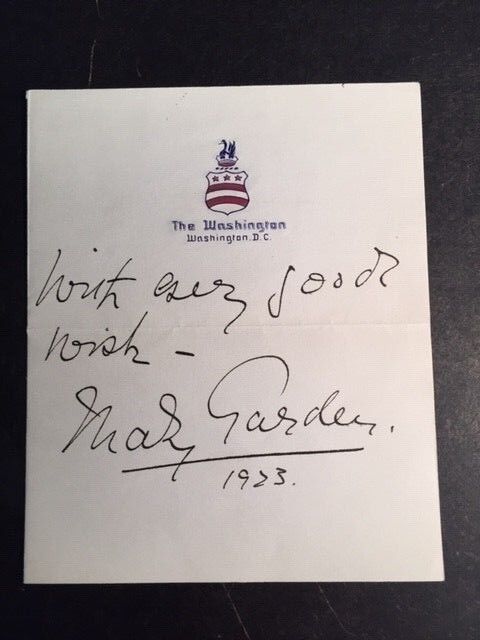 The Washington
Washington, D.C.
With every good
wish –
Mary Garden.
1923.